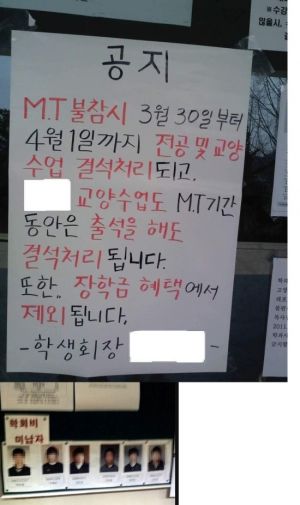 공지
M.T 불참시 3월 30일부터
4월 1일까지 전공 및 교양
수업 결석처리 되고,
교양수업도 M.T 기간
동안은 출석을 해도
결석처리 됩니다.
또한.. 장학금 혜택에서
제외 됩니다,
-학생회장 -
학회비
미납자